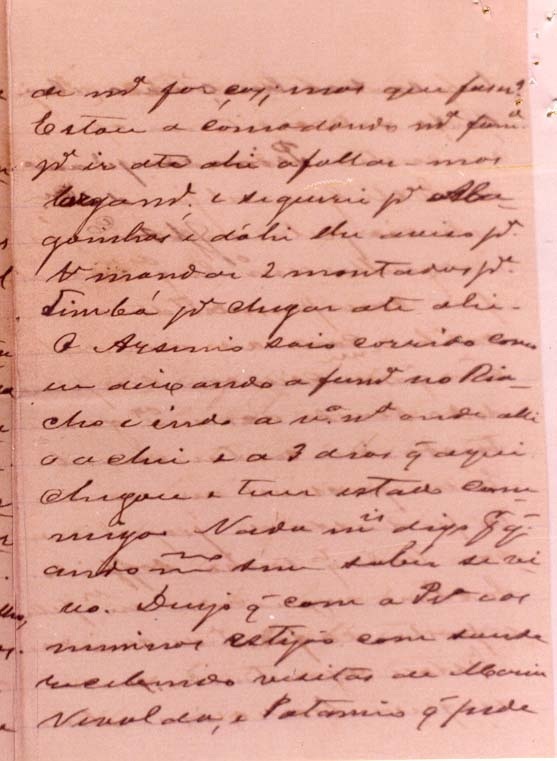 de m.ª forças; mas que fazer?
Estou a comodando m.ª fam.ª
p.ª ir ate ali a faltar-mos
e seguirei p.ª Ala-
goinhas e dahi lhe aviso p.ª
V. mandar 2 montados p.ª
Timbó p.ª chegar ate ali.
O Arsenio saio corrido como
eu deixando a fam.ª no Ria-
cho e indo a v.ª n.ª onde ali
o achei e a 3 dias q̃ aqui
chegou e tem estado com-
migo. Nada m.s digo q̃
ando mmo sem saber se vi-
vo. Dezejo q̃ com a Prª e os
meninos estejão com saude
recebendo visitas de Maria
Vivalda, e Potamio q̃ pede